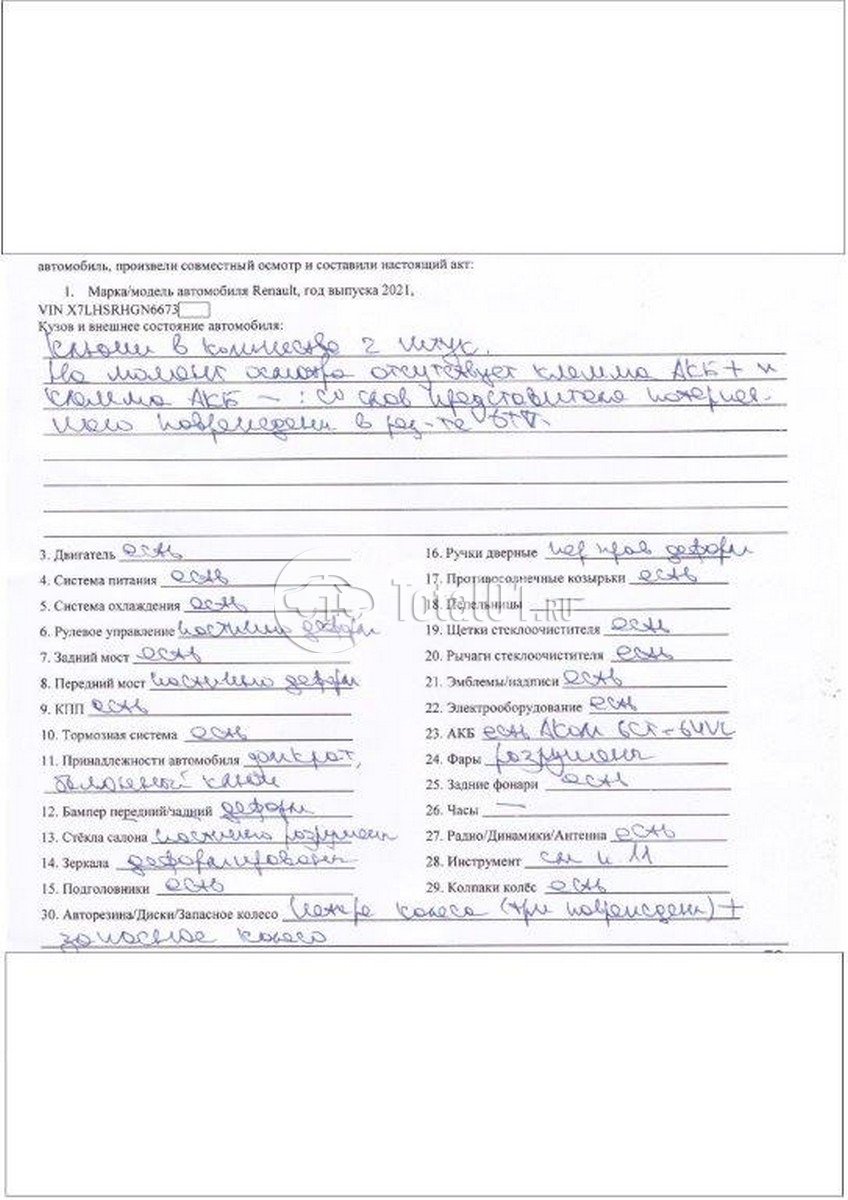 автомобиль, произвели совместный осмотр и составили настоящий акт:
1. Марка/модель автомобиля Renault, год выпуска 2021,
VIN X7LHSRHGN6673
Кузов и внешнее состояние автомобиля:
Ключи в количестве 2 штук.
На момент осмотра отсутствует клемма АКБ + и
клемма АКБ – : со слов представителя
повреждены в рез-те ДТП.
3. Двигатель есть
4. Система питания есть
5. Система охлаждения есть
6. Рулевое управление частично деформ
7. Задний мост есть
8. Передний мост частично деформ
9. КПП есть
10. Тормозная система есть
11. Принадлежности автомобиля домкрат,
баллонный ключ
12. Бампер передний/задний деформ
13. Стёкла салона частично разрушены
14. Зеркала деформированы
15. Подголовники есть
16. Ручки дверные пер прав деформ
17. Противосолнечные козырьки есть
18. Пепельницы
19. Щетки стеклоочистителя есть
20. Рычаги стеклоочистителя есть
21. Эмблемы/надписи есть
22. Электрооборудование есть
23. АКБ есть Аком 6СТ-
24. Фары разрушены
25. Задние фонари есть
26. Часы —
27. Радио/Динамики/Антенна есть
28. Инструмент см п 11
29. Колпаки колёс есть
30. Авторезина/Диски/Запасное колесо четыре колеса (три повреждены) +
запасное колесо
Total01.RU